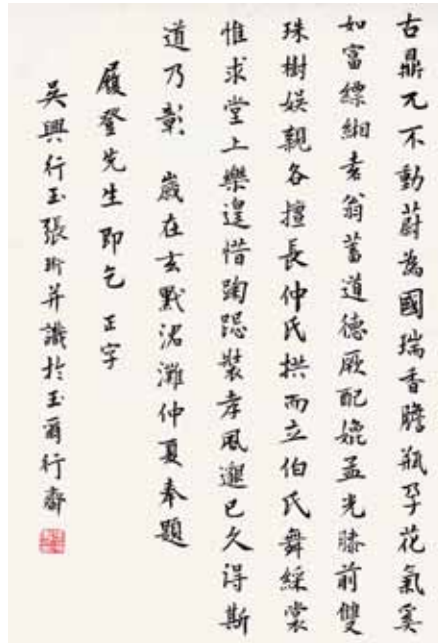 古鼎兀不動蔚為國瑞香膽瓶孕花氣奚
如富縹緗耆翁蓄道德厥配媲孟光膝前雙
珠樹娛親各擅長仲氏拱而立伯氏舞綵裳
惟求堂上樂遑惜踘跽裝孝風邈已久得斯
道乃彰 歲在玄黓涒灘仲夏奉題
履登先生即乞 正字
吳興行玉張珩并識於玉爾行齋